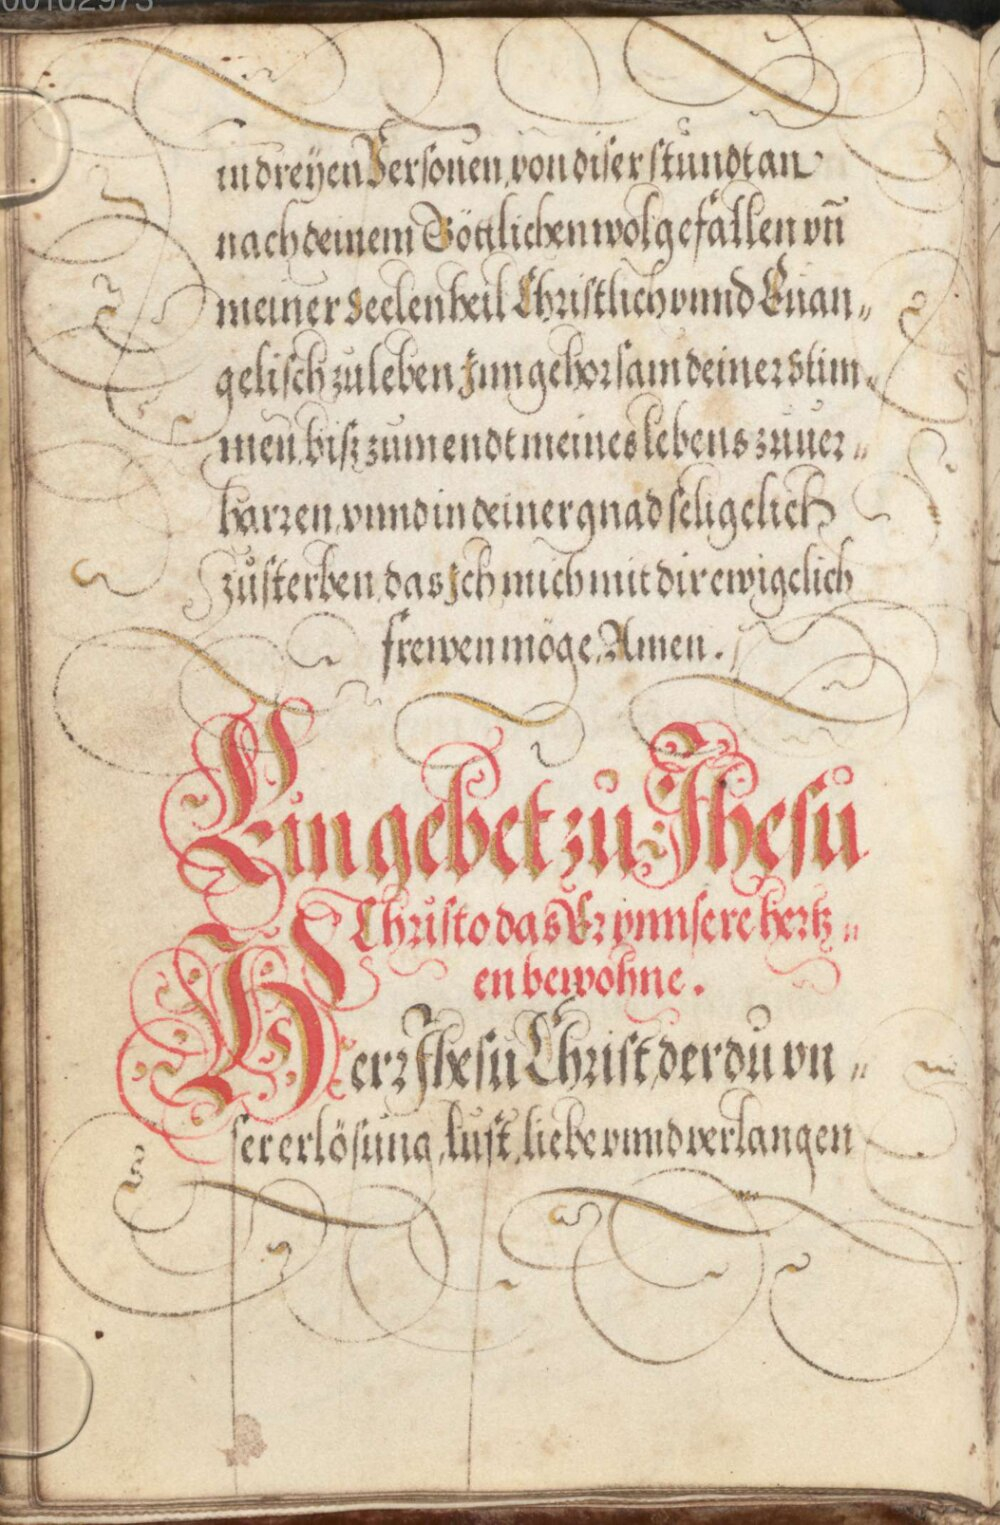 00102973
in dreyen Personen, von diser stundt an
nach deinem Göttlichen wolgefallen vn̄
meiner Seelen heil Christlich vnnd Euan„
gelisch zu leben Inn gehorsam deiner Stim„
men, biß zum endt meines lebens zu uer„
harren, vnnd in deiner gnad seligelich
zu sterben, das Ich mich mit dir ewigelich
frewen möge, Amen.
Ein gebet zu Jhesu
Christo das Er ynn sere hertz„
en bewohne.
Herr Jhesu Christ, der du vn„
ser erlösung, lust, liebe vnnd verlangen